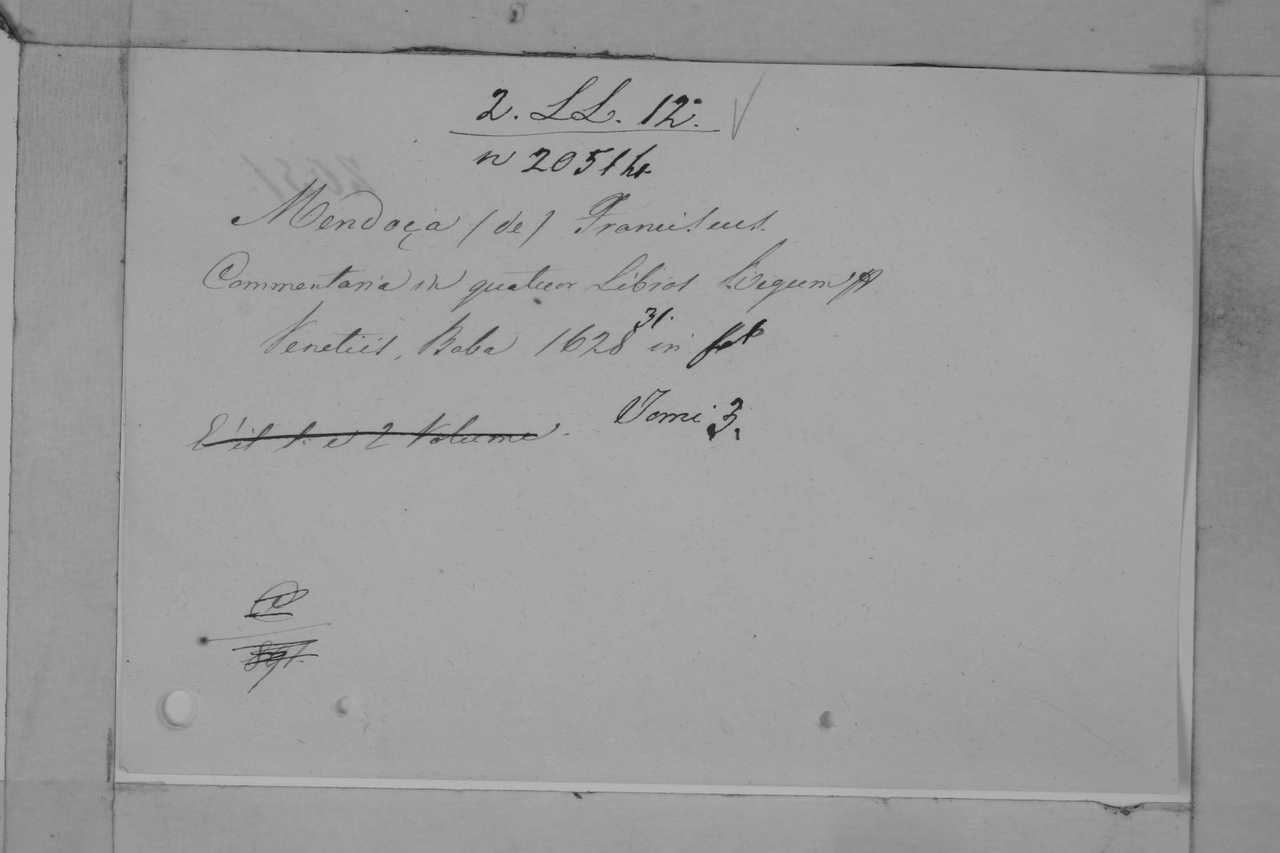 2. LL. 12.
n 2051
Mendoça (de) Franciscus.
Commentaria in quatuor Libros Regum
Venetiis, Baba 1628 31. in
E' il 1. e 2 Volume. Tomi 3.
891.